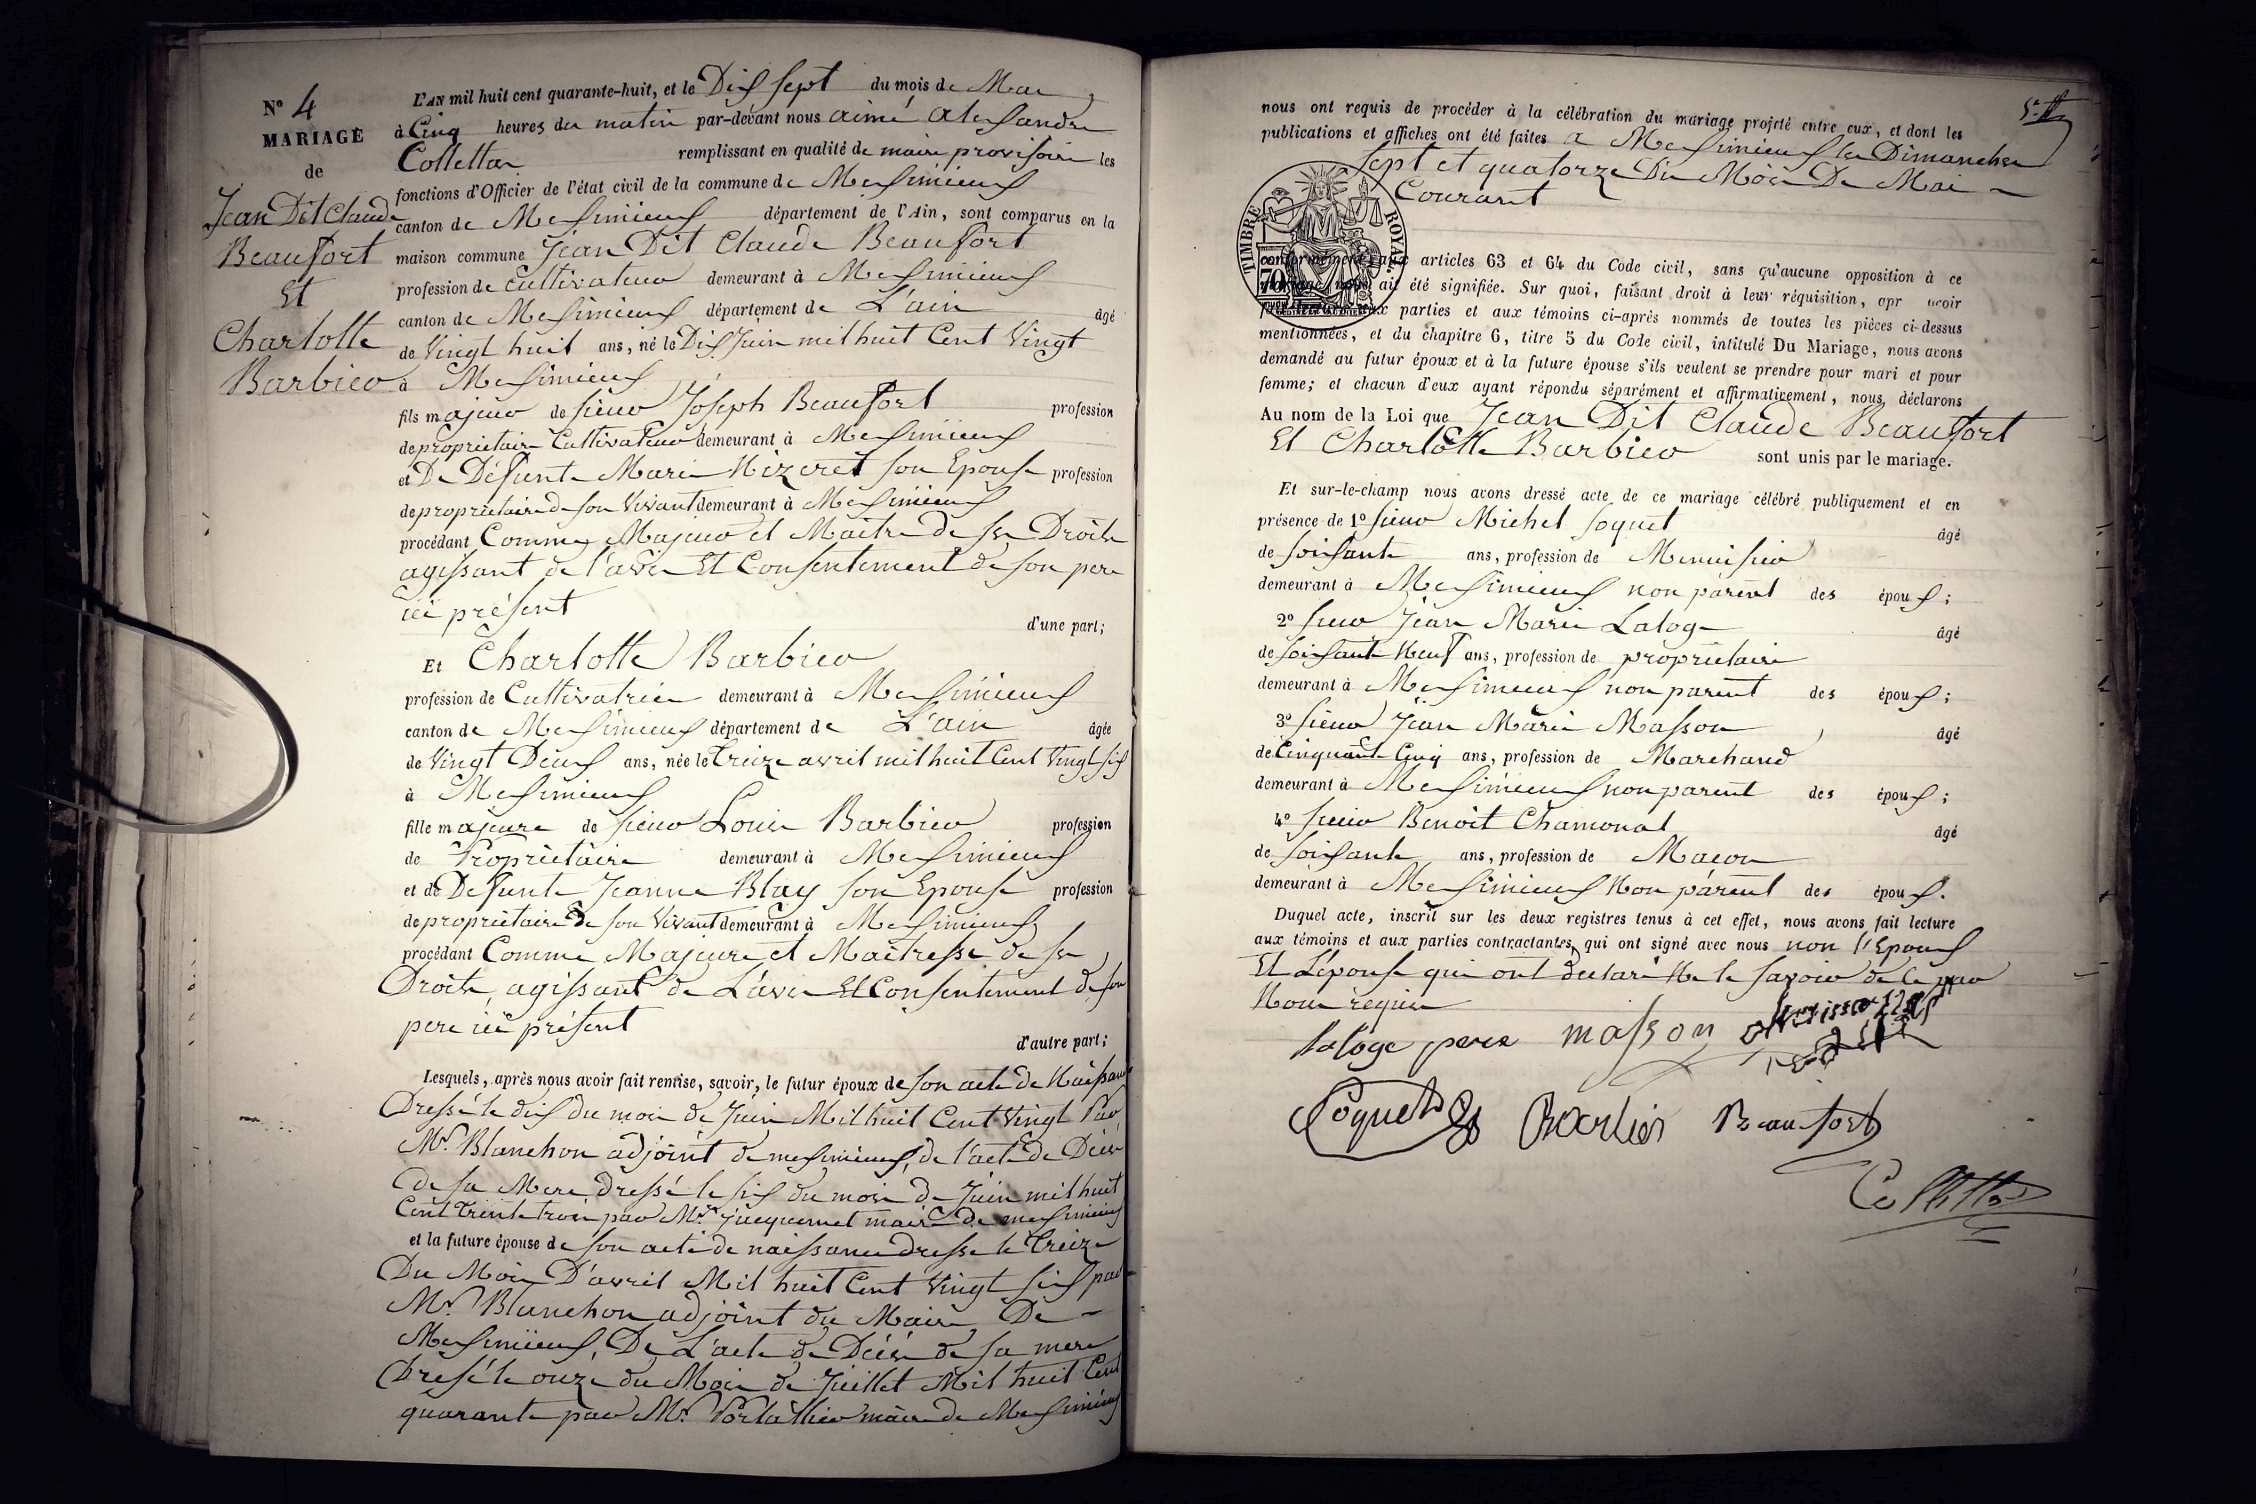 N° 4
MARIAGE
de
Jean Dit Claude
Beaufort
Et
Charlotte
Barbier
L'AN mil huit cent quarante-huit, et le Dix sept du mois de Mai
à Cinq heures du matin par-devant nous aimé alexandre
Collettaz remplissant en qualité de maire provisoire les
fonctions d'Officier de l'état civil de la commune de Meximieux
canton de Meximieux département de l'Ain, sont comparus en la
maison commune Jean Dit Claude Beaufort
profession de cultivateur demeurant à Meximieux
canton de Meximieux département de L'ain âgé
de Vingt huit ans, né le Dix Juin mil huit Cent Vingt
à Meximieux
fils majeur de sieur Joseph Beaufort profession
de propriétaire Cultivateur demeurant à Meximieux
et De Défunte Marie Mizeret son Epouse profession
de propriétaire de son Vivant demeurant à Meximieux
procédant Comme Majeur et Maitre de ses Droits
agissant de l'avis Et Consentement de son pere
ici présent
d'une part;
Et Charlotte Barbier
profession de Cultivatrice demeurant à Meximieux
canton de Meximieux département de L'ain âgée
de Vingt Deux ans, née le Treize avril mil huit Cent Vingt six
à Meximieux
fille majeure de sieur Louis Barbier profession
de Propriétaire demeurant à Meximieux
et de Defunte Jeanne Blay son Epouse profession
de propriétaire De son Vivant demeurant à Meximieux
procédant Comme Majeure et Maitresse de ses
Droits, agissant de L'avis Et Consentement de son
pere ici présent
d'autre part;
Lesquels, après nous avoir fait remise, savoir, le futur époux de son acte de Naissance
Dressé le dix du mois de Juin Mil huit Cent Vingt Par
Mr. Blanchon adjoint de meximieux, de l'acte de Décès
de sa Mere dressé le six du mois de Juin mil huit
Cent Trente trois par Mr. Jacquemet maire de meximieux
et la future épouse de son acte de naissance dressé le Treize
Du Mois D'avril Mil huit Cent Vingt six par
Mr. Blanchon adjoint du Maire De
Meximieux, De L'acte de Décès de sa mere
Dressé le onze du Mois de Juillet Mil huit Cent
quarante par Mr. Portallier maire de Meximieux
nous ont requis de procéder à la célébration du mariage projeté entre eux, et dont les
publications et affiches ont été faites a Meximieux les Dimanches
sept et quatorze Du Mois De Mai
Courant
TIMBRE ROYAL
70
conformément aux articles 63 et 64 du Code civil, sans qu'aucune opposition à ce
mariage nous ait été signifiée. Sur quoi, faisant droit à leur réquisition, apr avoir
parties et aux témoins ci-après nommés de toutes les pièces ci-dessus
mentionnées, et du chapitre 6, titre 5 du Code civil, intitulé Du Mariage, nous avons
demandé au futur époux et à la future épouse s'ils veulent se prendre pour mari et pour
femme; et chacun d'eux ayant répondu séparément et affirmativement, nous déclarons
Au nom de la Loi que Jean Dit Claude Beaufort
Et Charlotte Barbier sont unis par le mariage.
Et sur-le-champ nous avons dressé acte de ce mariage célébré publiquement et en
présence de 1° sieur Michel Soquet âgé
de soixante ans, profession de Menuisier
demeurant à Meximieux non parent des époux;
2° sieur Jean Marie Laloge âgé
de soixante Neuf ans, profession de propriétaire
demeurant à Meximieux non parent des époux;
3° sieur Jean Marie Masson âgé
de Cinquante Cinq ans, profession de Marchand
demeurant à Meximieux non parent des époux;
4° sieur Benoit Chamonal âgé
de soixante ans, profession de Macon
demeurant à Meximieux Non parent des époux.
Duquel acte, inscrit sur les deux registres tenus à cet effet, nous avons fait lecture
aux témoins et aux parties contractantes, qui ont signé avec nous non l'Epoux
Et L'épouse qui ont déclaré Ne le savoir de ce par
Nous requis
laloge pere masson
Soquet Barbier Beaufort
Collettaz